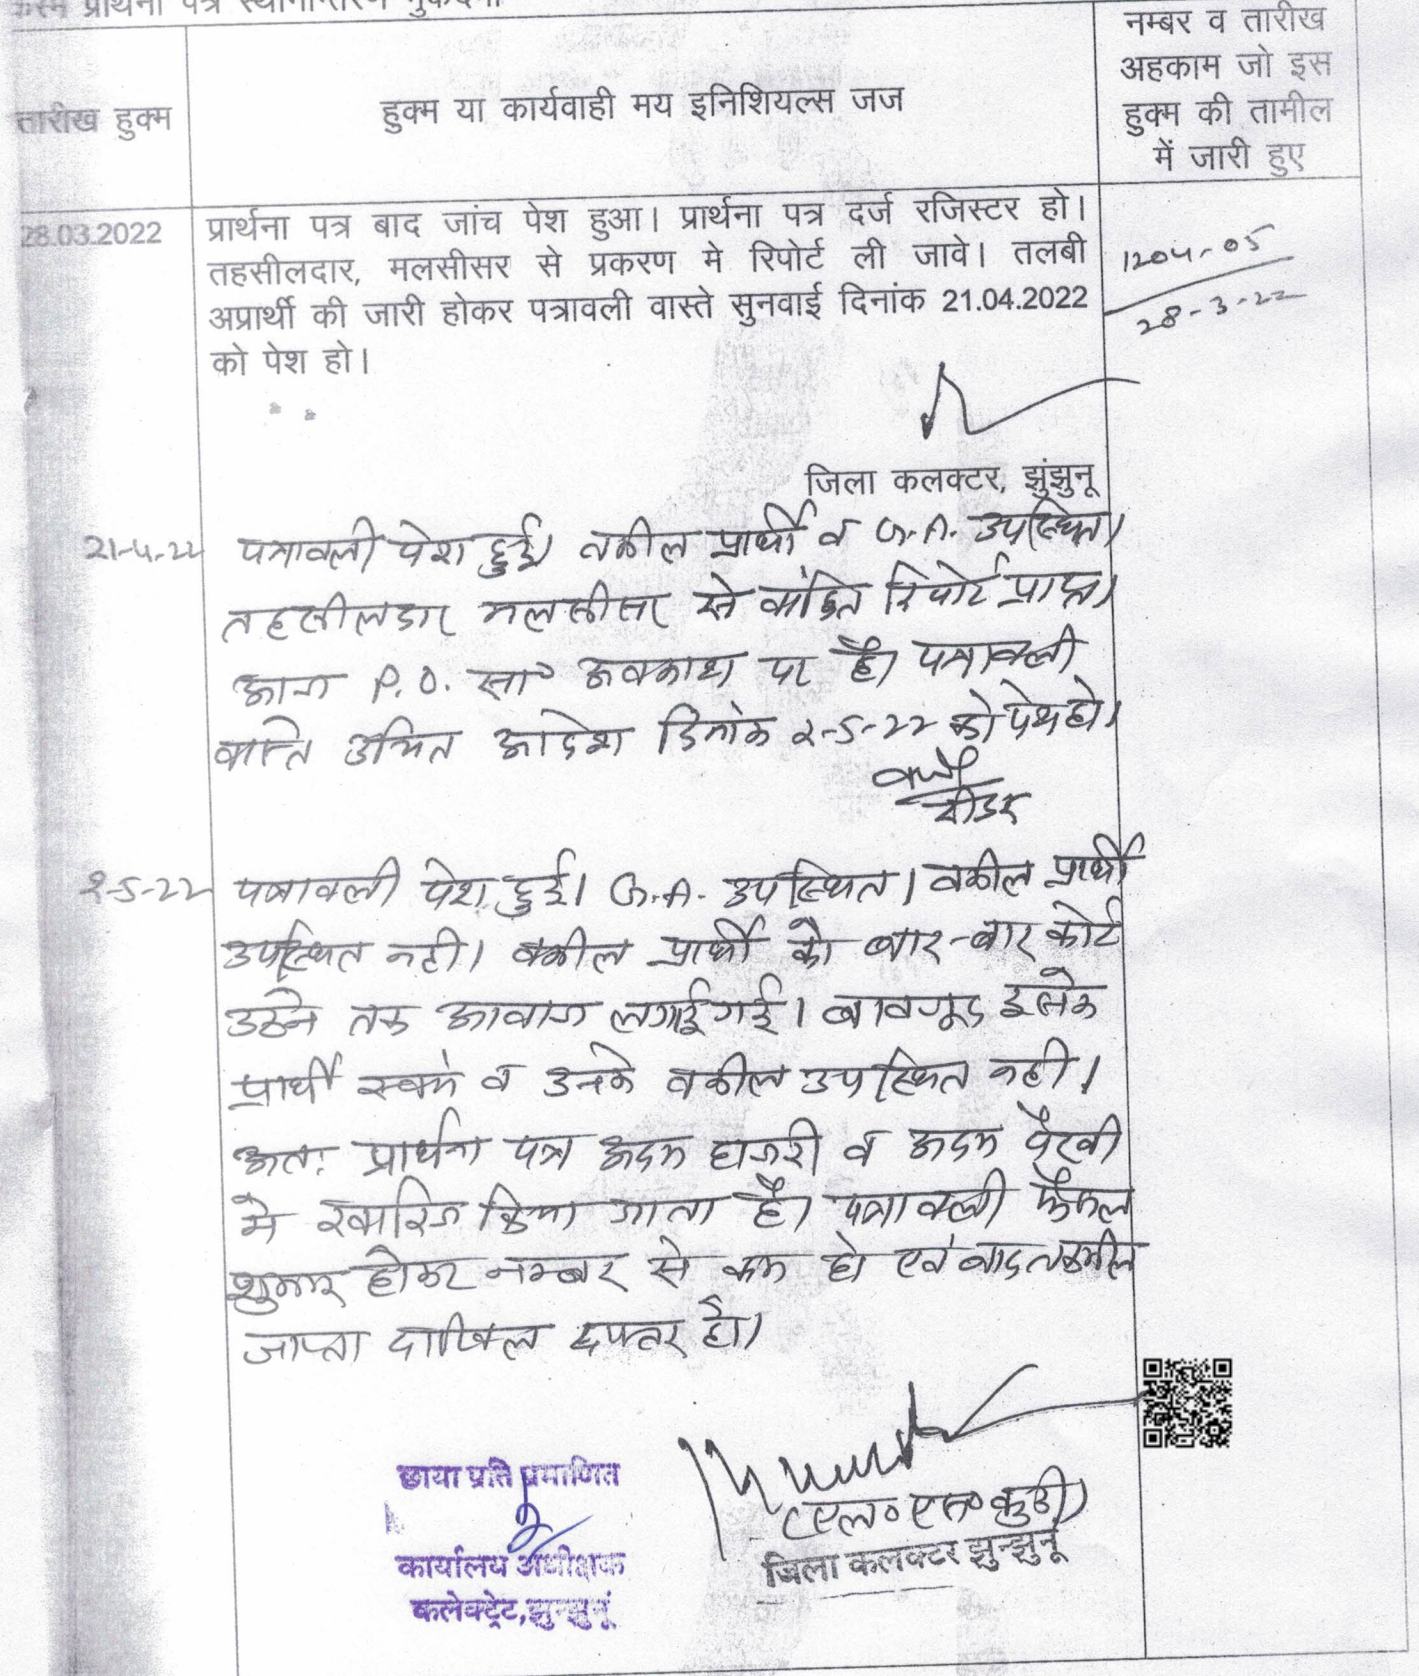 प्रार्थना पत्र स्थानान्तरण मुकदमा
तारीख हुक्म
हुक्म या कार्यवाही मय इनिशियल्स जज
नम्बर व तारीख
अहकाम जो इस
हुक्म की तामील
में जारी हुए
28.03.2022
प्रार्थना पत्र बाद जांच पेश हुआ। प्रार्थना पत्र दर्ज रजिस्टर हो।
तहसीलदार, मलसीसर से प्रकरण मे रिपोर्ट ली जावे। तलबी
अप्रार्थी की जारी होकर पत्रावली वास्ते सुनवाई दिनांक 21.04.2022
को पेश हो।
1204-05
28-3-22
जिला कलक्टर, झुंझुनू
21-4-22
पत्रावली पेश हुई। वकील प्रार्थी व G.A. उपस्थित।
तहसीलदार मलसीसर से वांछित रिपोर्ट प्राप्त।
आज P.O. सा० अवकाश पर है। पत्रावली
वास्ते उचित आदेश दिनांक 2-5-22 को पेश हो।
रीडर
2-5-22
पत्रावली पेश हुई। G.A. उपस्थित। वकील प्रार्थी
उपस्थित नही। वकील प्रार्थी को बार-बार कोर्ट
उठने तक आवाज लगाई गई। बावजूद इसके
प्रार्थी स्वयं व उनके वकील उपस्थित नही।
अतः प्रार्थना पत्र अदम हाजरी व अदम पैरवी
मे खारिज किया जाता है। पत्रावली फैसल
शुमार होकर नम्बर से कम हो एवं बाद तकमील
जाप्ता दाखिल दफ्तर हो।
(एल०एन० कुडी)
जिला कलक्टर झुन्झुनूं
छाया प्रति प्रमाणित
कार्यालय अधीक्षक
कलेक्ट्रेट,झुन्झुनूं